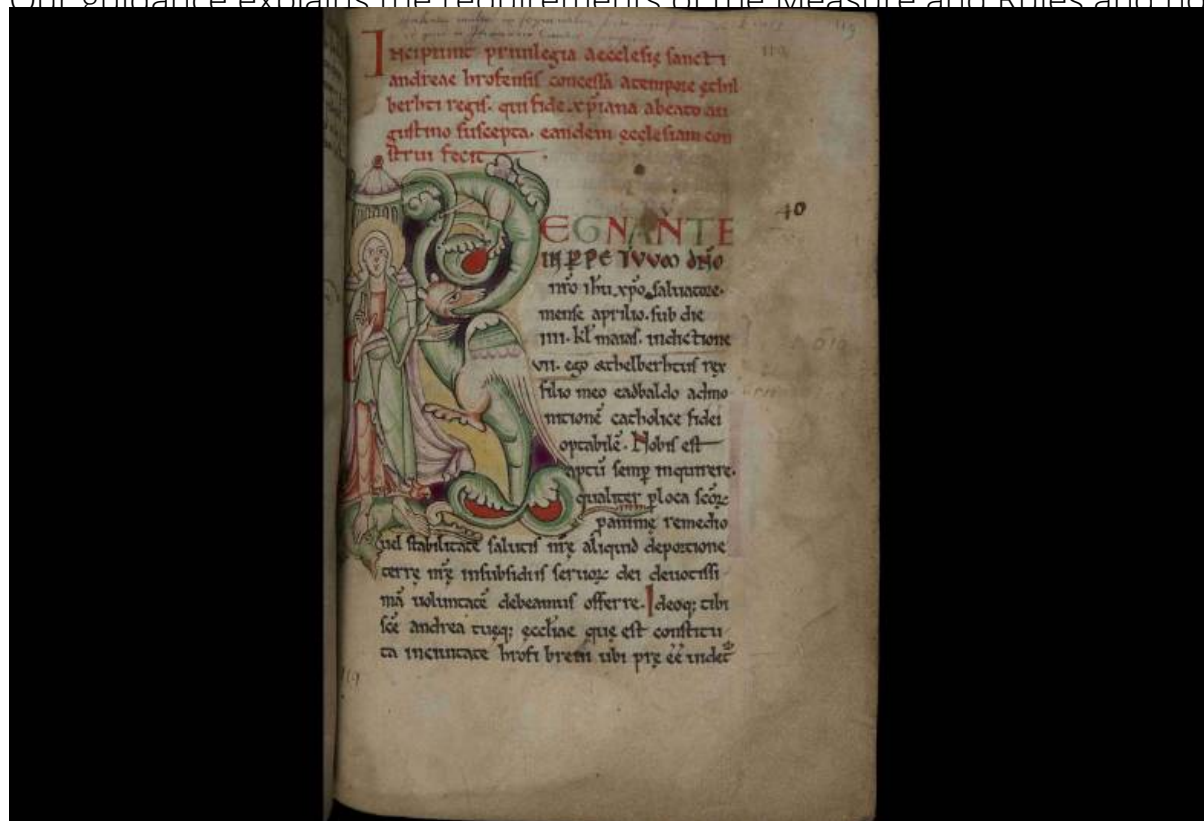 Our guidance explains the requirements of the Measure and Rules and ho
119
Incipiunt priuilegia aecclesię sancti
andreae hrofensis concessa a tempore ęthil
berhti regis. qui fide xp̄iana abeato au
gustino suscepta. eandem ęcclesiam con
strui fecit
40
REGNANTE
IN P̱PETVVM dn̄o
nr̄o ih̄u xp̄o saluatore.
mense aprilio. sub die
iiii. kl̄ maias. indictione
vii. ego æthelberhtus rex
filio meo eadbaldo admo
nitionē catholice fidei
optabilē. Nobis est
aptū semp̱ inquirere.
qualiter p̱ loca sc̄oꝝ
pro anime remedio
uel stabilitate salutis nr̄ę aliquid deportione
terrę nr̄ę insubsidiis seruoꝝ dei deuotissi
mā uoluntatē debeamus offerre. Ideoq; tibi
sc̄e andrea tuęq; ęccl̄iae quę est constitu
ta inciuitate hrofi breui ubi pręēē uidet᷑
119